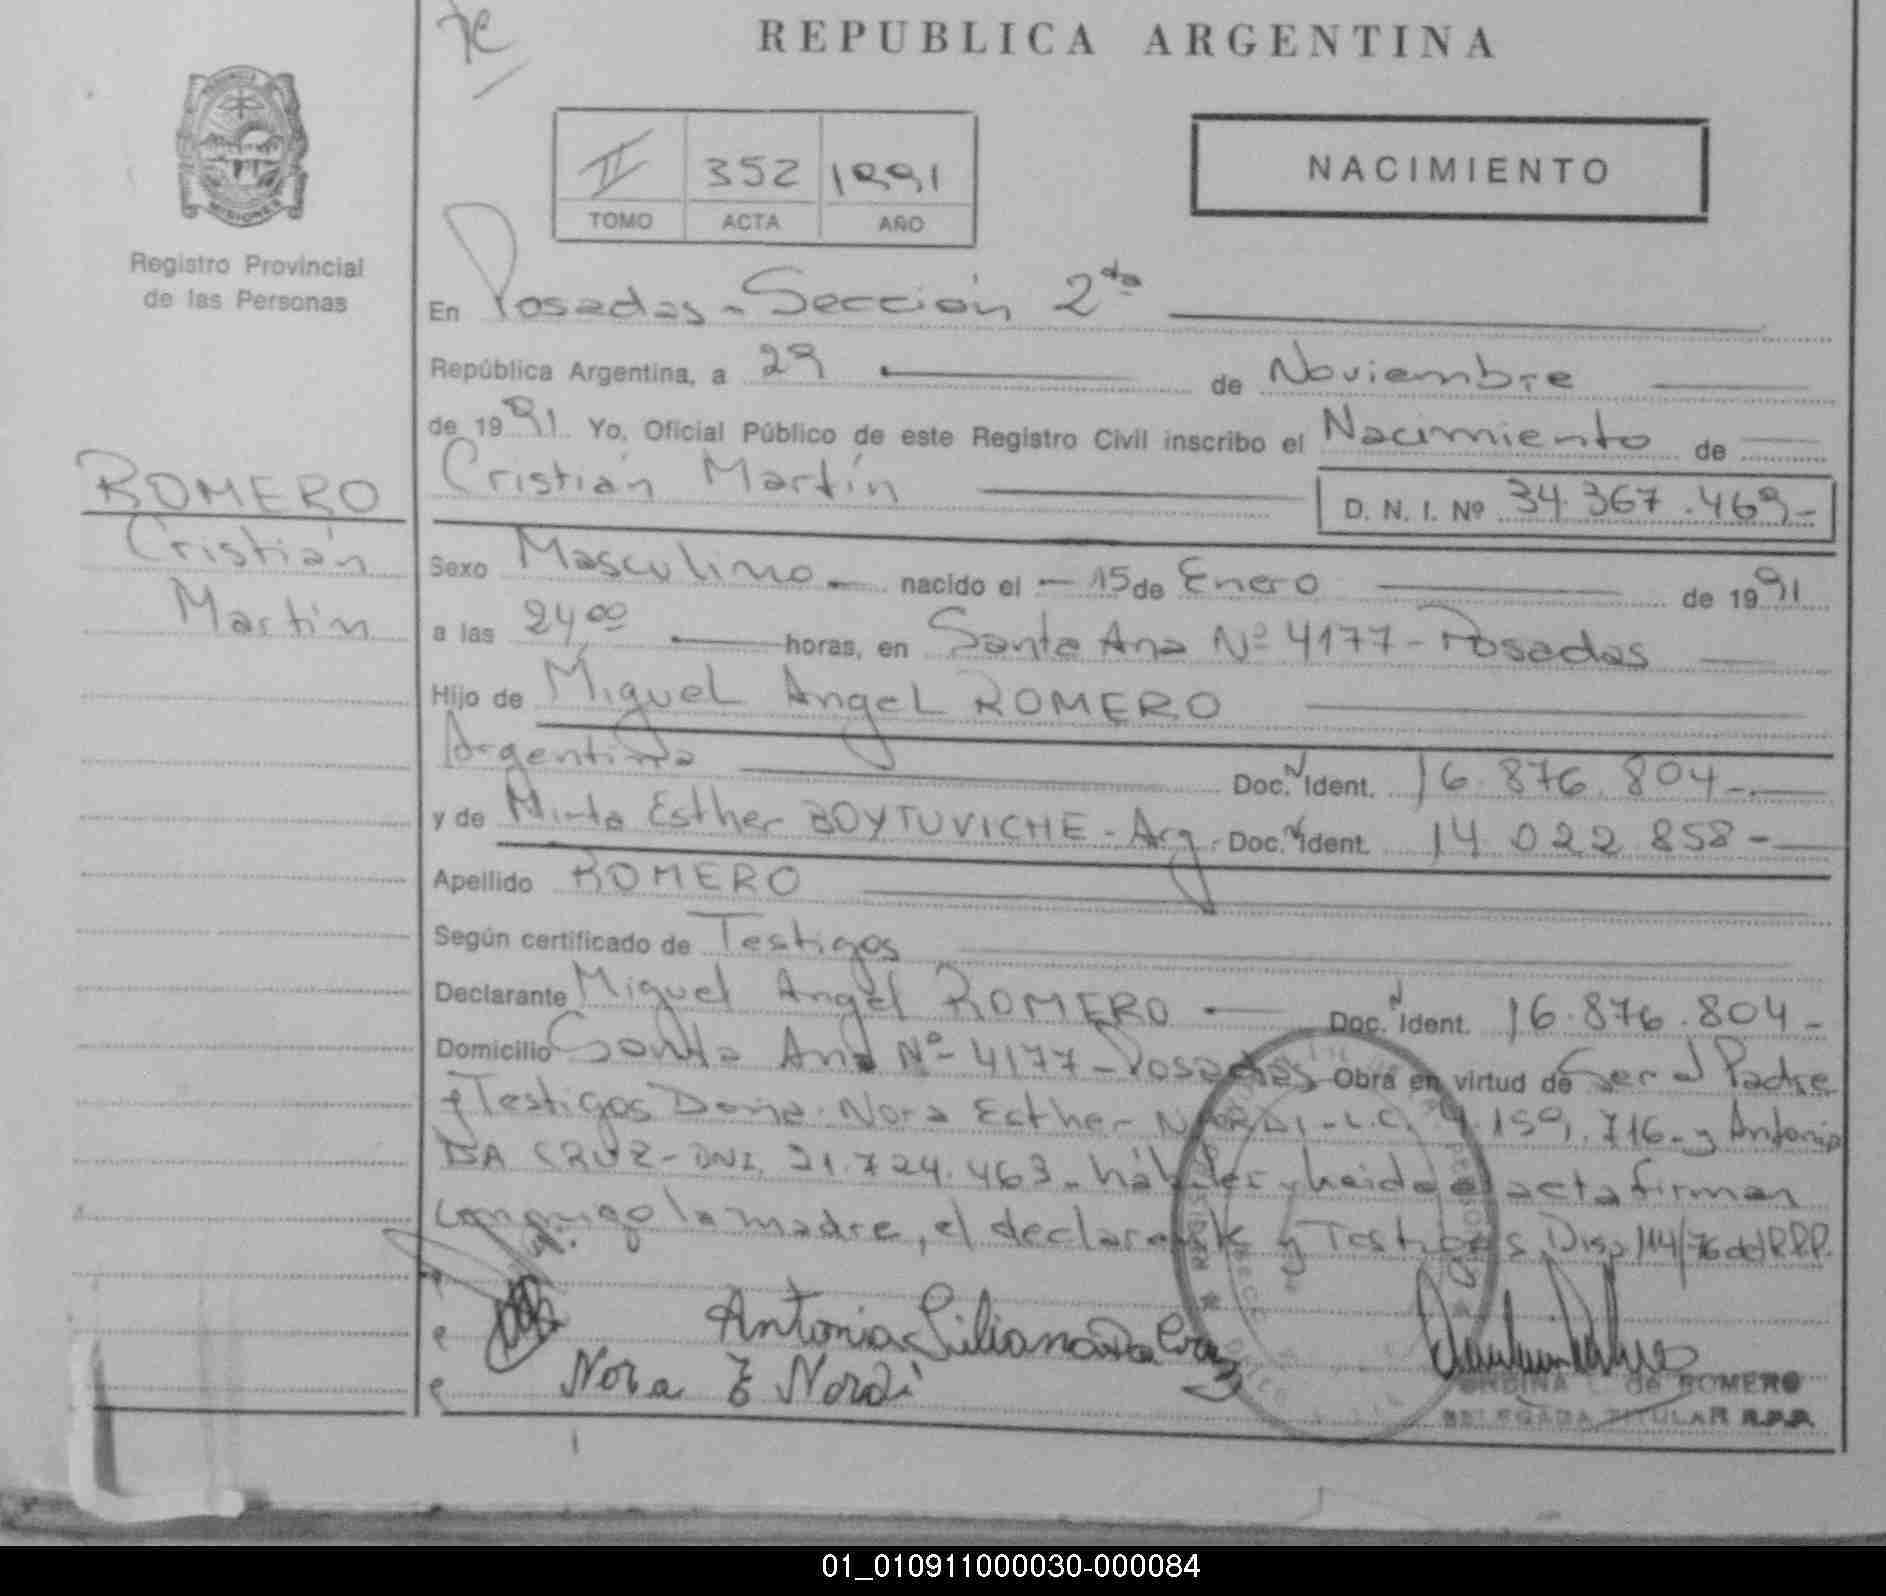 REPUBLICA ARGENTINA
PROVINCIA
MISIONES
Registro Provincial
de las Personas
II 352 1991
TOMO ACTA AÑO
NACIMIENTO
En Posadas - Sección 2da
República Argentina, a 29 de Noviembre
de 1991 Yo, Oficial Público de este Registro Civil inscribo el Nacimiento de
Cristián Martín D. N. I. Nº 34.367.469-
ROMERO
Cristián
Martín
Sexo Masculino - nacido el - 15 de Enero de 1991
a las 24 00 horas, en Santa Ana Nº 4177 - Posadas
Hijo de Miguel Angel ROMERO
Argentina Doc. N Ident. 16.876.804-.
y de Mirta Esther BOYTUVICHE - Arg. Doc. N Ident. 14.022.858-
Apellido ROMERO
Según certificado de Testigos
Declarante Miguel Angel ROMERO Doc. N Ident. 16.876.804-
Domicilio Santa Ana Nº 4177 - Posadas Obra en virtud de Ser el Padre
y Testigos Doña Nora Esther NARDI - L.C. 4.159.716- y Antonia
DA CRUZ - DNI. 21.724.463 - hábiles y leida el acta firman
conmigo la madre, el declarante y Testigos Disp 114/76 del R.P.P.
Antonia Liliana Da Cruz
Nora E Nardi
de ROMERO
DELEGADA TITULAR R.P.P.
01_010911000030-000084